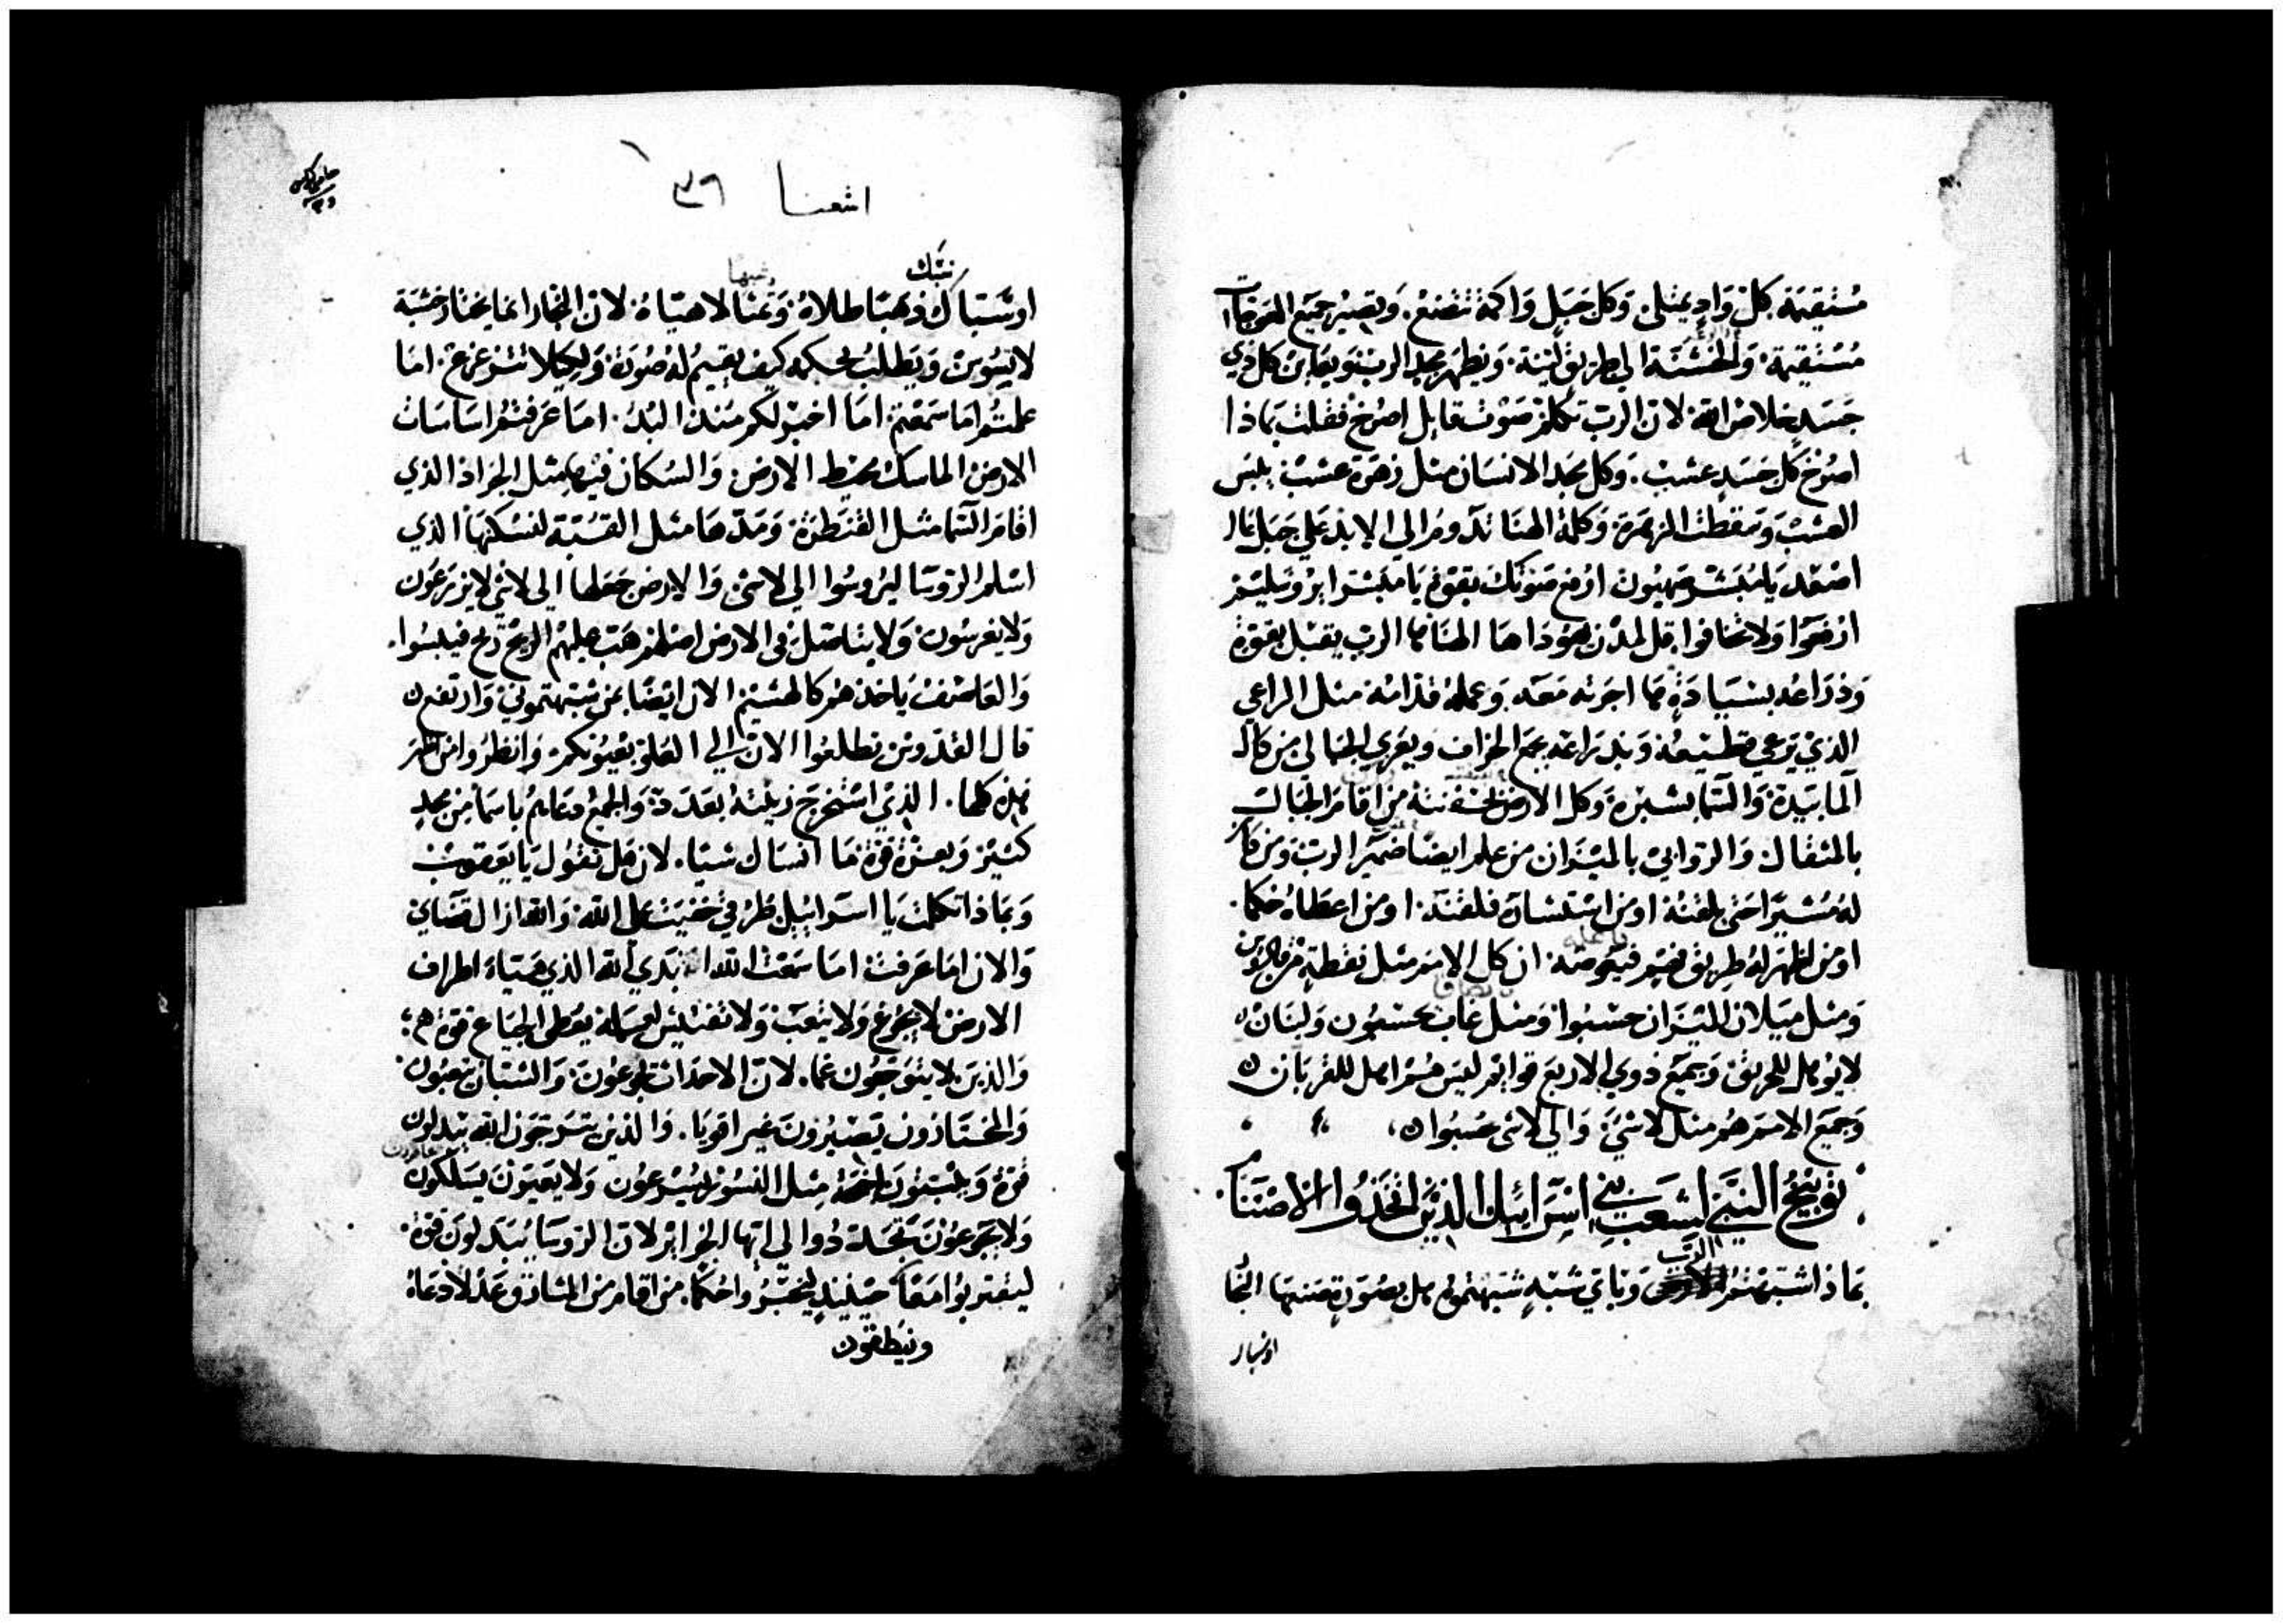 مستقيمة كل واد يمتلى. وكل جبل واكمة تتضع. ويصير جميع المعوجات
مستقيمة. والخشنة الى طريق لينة. ويظهر مجد الرب ويعاين كل ذي
جسد خلاص الله. لان الرب تكلم صوت قايل اصرخ فقلت بماذا
اصرخ كل جسد عشب. وكل مجد الانسان مثل زهرة عشب يبس
العشب وسقطت الزهرة وكلمة الهنا تدوم الى الابد على جبل عال
اصعد يا مبشر صهيون ارفع صوتك بقوة يا مبشر ايروسليم
ارفعوا ولا تخافوا قل لمدن يهودا ها الهنا ها الرب يقبل بقوة
وذراعه بسيادة ها اجرته معه وعمله قدامه مثل الراعي
الذي يرعي قطيعه وبذراعه يجمع الخراف ويعزي الحبالى من كال
الما بيده والسما بشبره وكل الارض بحفنته من اقام الجبال
بالمثقال والروابي بالميزان من علم ايضا ضمير الرب ومن كان
له مشيرا حتى يلقنه او من استشاره فلقنه او من اعطاه حكما.
او من اظهر له طريق فهم فيعوضه. ان كل الامم مثل نقطة من قادوس
ومثل ميلان الميزان حسبوا ومثل غاب يحسبون ولبنان
لا يؤهل للحريق وجميع ذوي الاربع قوايم ليس هم اهل للقربان
وجميع الامم هم مثل لا شي والى لا شي حسبوا
توبيخ النبي لشعب بني اسرائيل الذين اتخذوا الاصنام
بماذا شبهتم الرب وباي شبه شبهتموه هل بصورة صنعها النجار
او سباك
اشعيا ٣٩
سبك
اوسباك ذهبا طلاه وتمثالا هياه. لان النجار انما يختار خشبة
لا تسوس ويطلب بحكمة كيف يقيم له صورة ولكيلا تتزعزع. اما
علمتم اما سمعتم اما اخبر لكم منذ البدء. اما عرفتم اساسات
الارض الماسك محيط الارض والسكان فيها مثل الجراد الذي
اقام السما مثل القنطرة ومدها مثل القبة لتسكنها الذي
اسلم الروسا ليروسوا الى لا شي والارض جعلها الى لا شي لا يزرعون
ولا يغرسون ولا يتاصل في الارض اصلهم هبت عليهم الريح فيبسوا.
والعاصف ياخذهم كالهشيم الان ايضا بمن شبهتموني وارتفع
قال القدوس تطلعوا الان الى العلو بعيونكم وانظروا من اظهر
هذه كلها. الذي استخرج زينته بعدده والجمع دعاهم باسما من مجد
كثير وبعزة قوة ما انساك شيا. لان هل تقول يا يعقوب
وبماذا تكلمت يا اسرائيل طرقي خفيت على الله والله ازال قضاي
والان اما عرفت اما سمعت الله ابدي الله الذي هياء اطراف
الارض لا يجوع ولا يتعب ولا تفتيش لفهمه يعطى الجياع قوة
والذين لا يتوجعون غما. لان الاحداث يجوعون والشبان يتعبون
والمختارون يصيرون غير اقويا. والذين يترجون الله يبدلون
قوة وينبتون اجنحة مثل النسور يسرعون ولا يعيون يسلكون
ولا يجوعون تجددوا لي ايتها الجزاير لان الروسا يبدلون قوة.
ليقتربوا معا حينيذ ليخبروا حكما. من اقام من المشارق عدلا دعاه
وينطلقون